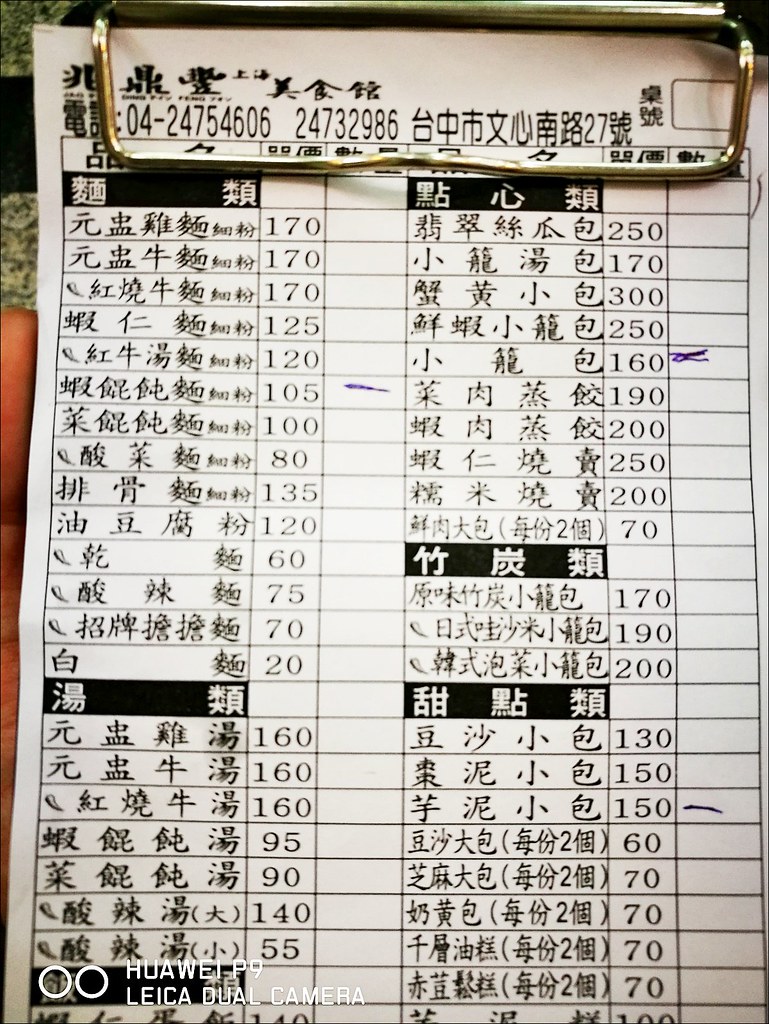 兆鼎豐 上海 美食館
桌號
電話:04-24754606 24732986 台中市文心南路27號
品 名 單價 數量 品 名 單價 數量
麵類
元盅雞麵細粉 170
元盅牛麵細粉 170
紅燒牛麵細粉 170
蝦仁麵細粉 125
紅牛湯麵細粉 120
蝦餛飩麵細粉 105
菜餛飩麵細粉 100
酸菜麵細粉 80
排骨麵細粉 135
油豆腐粉 120
乾麵 60
酸辣麵 75
招牌擔擔麵 70
白麵 20
湯類
元盅雞湯 160
元盅牛湯 160
紅燒牛湯 160
蝦餛飩湯 95
菜餛飩湯 90
酸辣湯(大) 140
酸辣湯(小) 55
類
蝦仁蛋飯 140
點心類
翡翠絲瓜包 250
小籠湯包 170
蟹黃小包 300
鮮蝦小籠包 250
小籠包 160
菜肉蒸餃 190
蝦肉蒸餃 200
蝦仁燒賣 250
糯米燒賣 200
鮮肉大包(每份2個) 70
竹炭類
原味竹炭小籠包 170
日式哇沙米小籠包 190
韓式泡菜小籠包 200
甜點類
豆沙小包 130
棗泥小包 150
芋泥小包 150
豆沙大包(每份2個) 60
芝麻大包(每份2個) 70
奶黃包(每份2個) 70
千層油糕(每份2個) 70
赤荳鬆糕(每份2個) 70
芋泥糕 100
HUAWEI P9
LEICA DUAL CAMERA